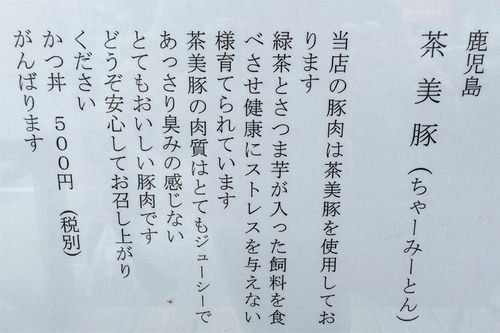 鹿児島
茶美豚（ちゃーみーとん）
当店の豚肉は茶美豚を使用してお
ります
緑茶とさつま芋が入った飼料を食
べさせ健康にストレスを与えない
様育てられています
茶美豚の肉質はとてもジューシーで
あっさり臭みの感じない
とてもおいしい豚肉です
どうぞ安心してお召し上がり
ください
かつ丼　５００円　（税別）
がんばります